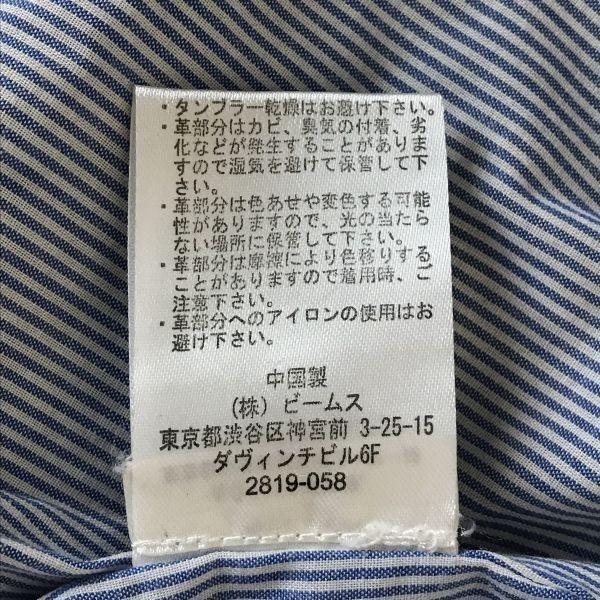 ・タンブラー乾燥はお避け下さい。
・革部分はカビ、臭気の付着、劣
化などが発生することがありま
すので湿気を避けて保管して下
さい。
・革部分は色あせや変色する可能
性がありますので、光の当たら
ない場所に保管して下さい。
・革部分は摩擦により色移りする
ことがありますので着用時、ご
注意下さい。
・革部分へのアイロンの使用はお
避け下さい。
中国製
(株) ビームス
東京都渋谷区神宮前 3-25-15
ダヴィンチビル6F
2819-058